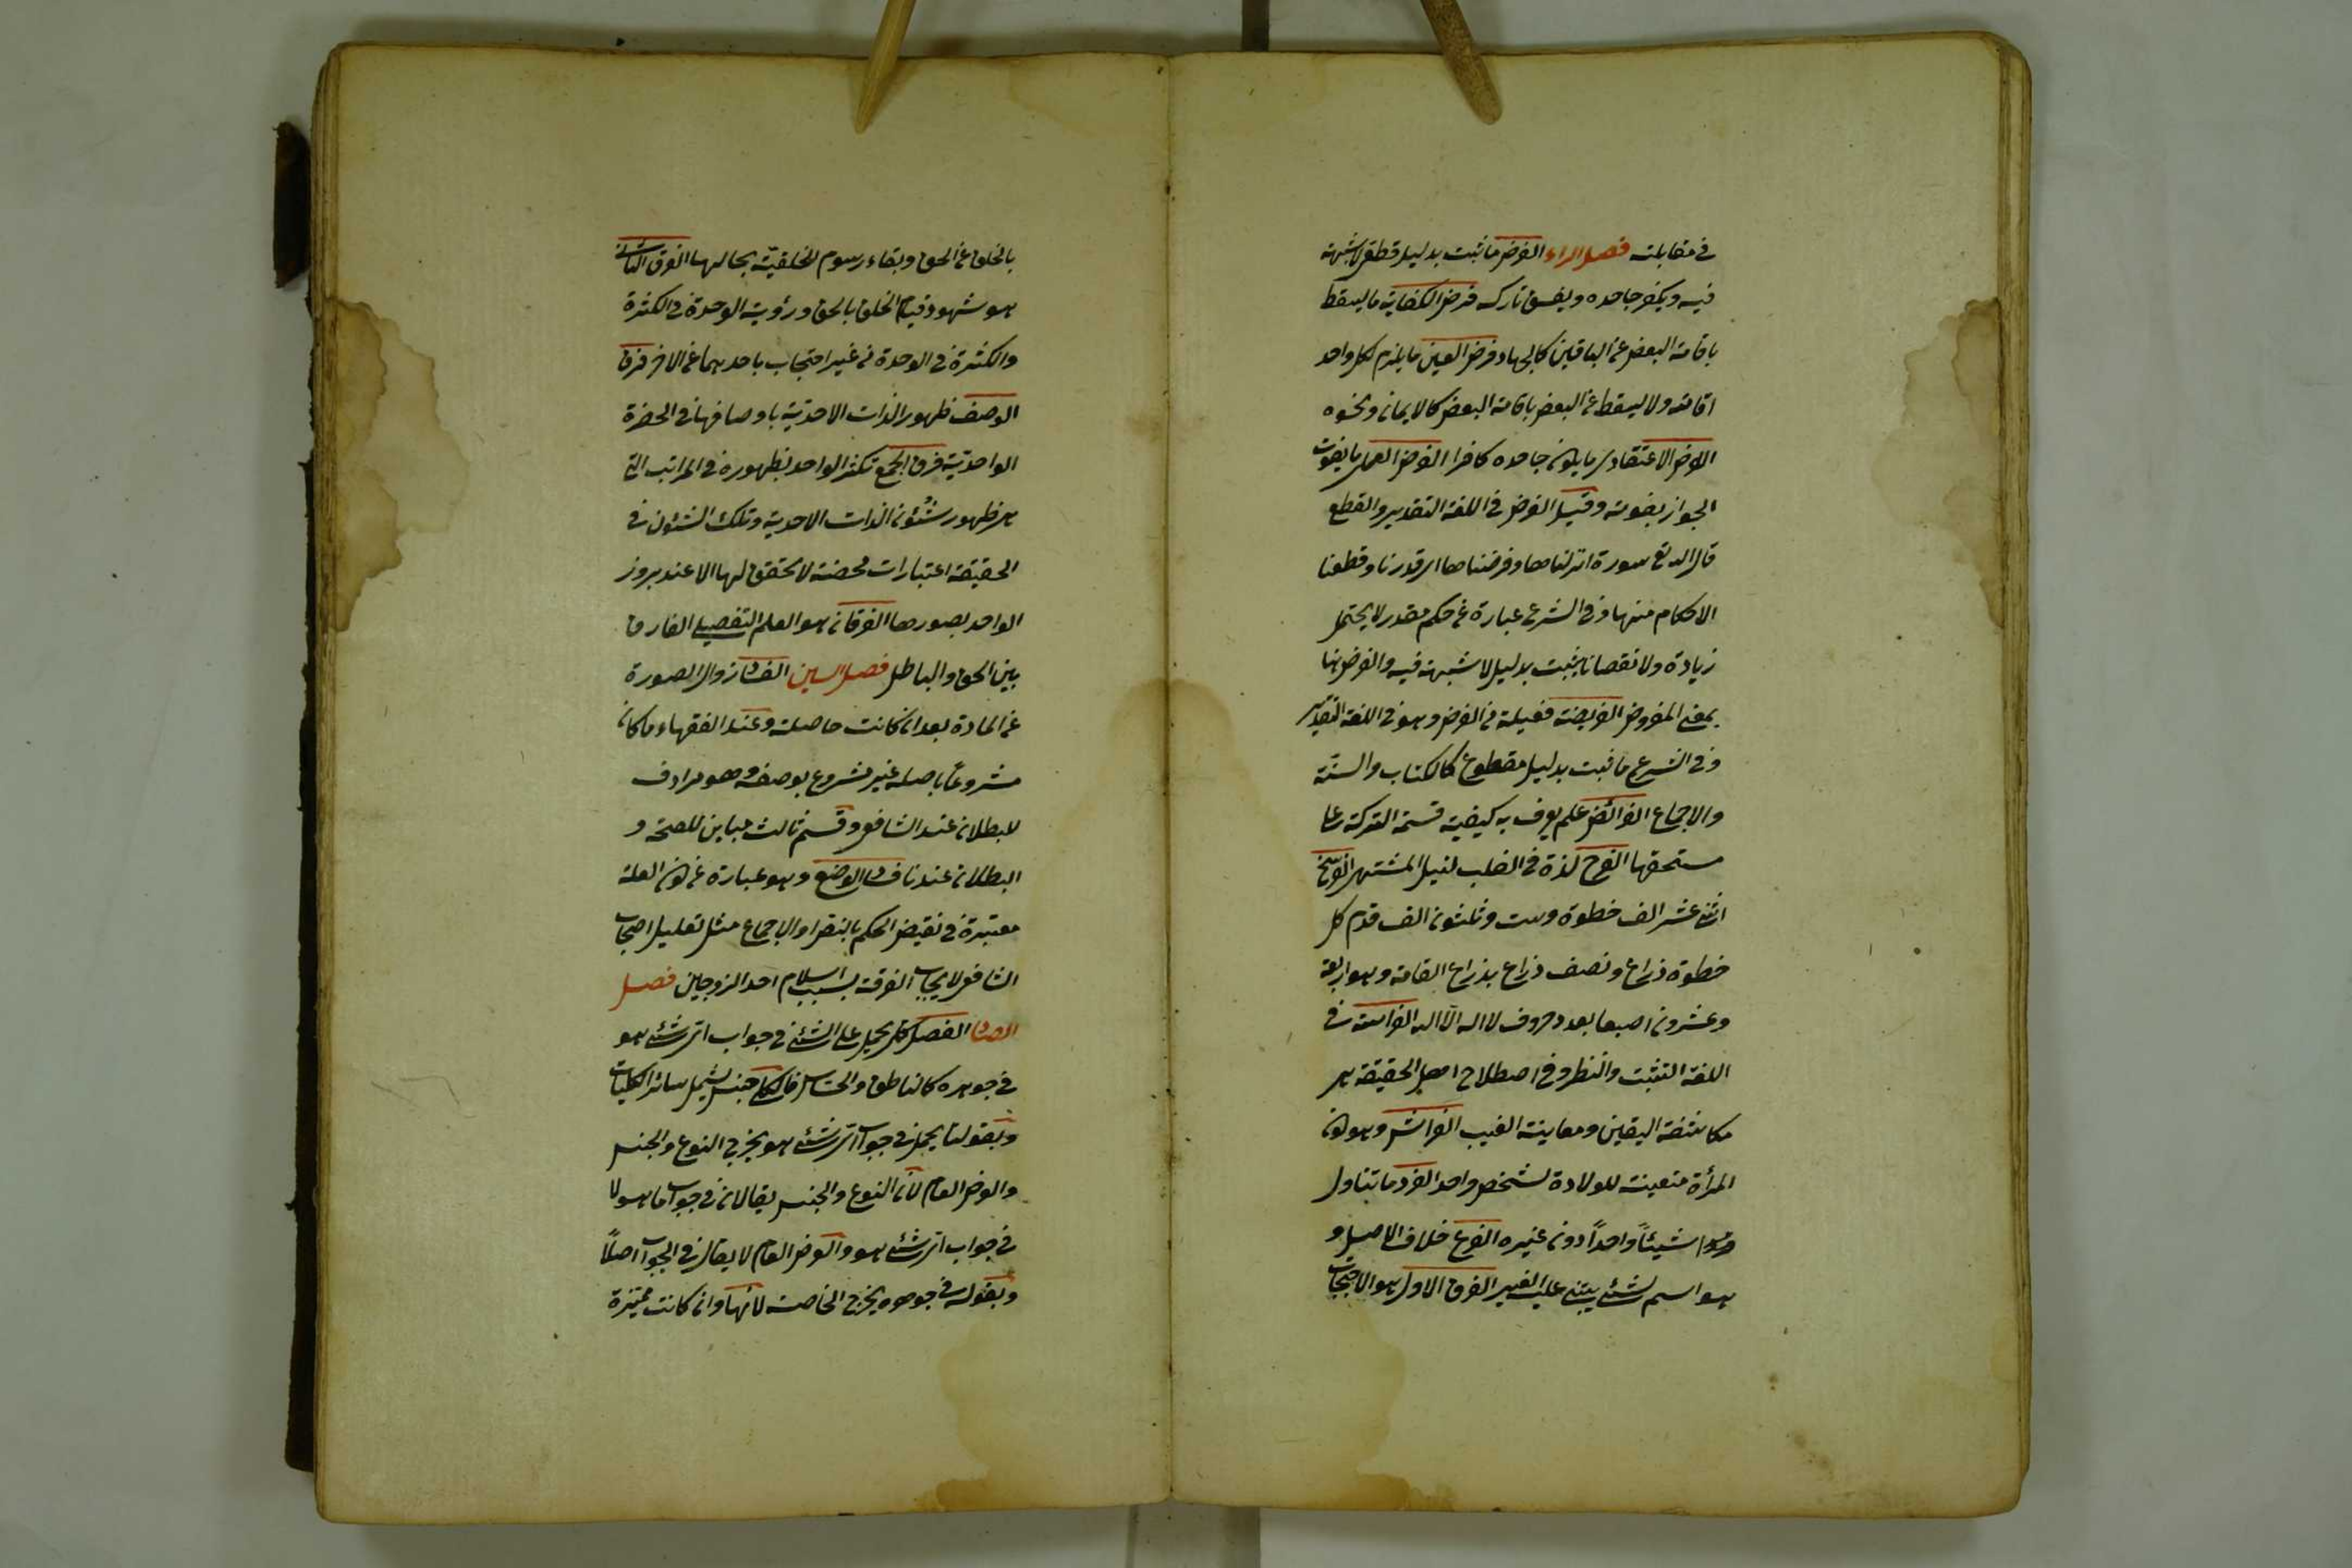 في مقابلته فصل الراء الفرض ما ثبت بدليل قطعي لا شبهة
فيه ويكفر جاحده ويفسق تاركه فرض الكفاية ما يسقط
باقامة البعض عن الباقين كالجهاد فرض العين ما يلزم لكل واحد
اقامته ولا يسقط عن البعض باقامة البعض كالايمان ونحوه
الفرض الاعتقادي ما يكون جاحده كافرا الفرض العملي ما يفوت
الجواز بفوته وقيل الفرض في اللغة التقدير والقطع
قال الله تع سورة انزلناها وفرضناها اي قدرنا وقطعنا
الاحكام منها وفي الشرع عبارة عن حكم مقدر لا يحتمل
زيادة ولا نقصانا يثبت بدليل لا شبهة فيه والفرض هنا
بمعنى المفروض الفريضة فعيلة من الفرض وهو في اللغة التقدير
وفي الشرع ما ثبت بدليل مقطوع كالكتاب والسنّة
والاجماع الفرائض علم يعرف به كيفية قسمة التركة على
مستحقها الفرح لذة في القلب لنيل المشتهى الفرسخ
اثنى عشر الف خطوة وست وثلثون الف قدم كل
خطوة ذراع ونصف ذراع بذراع القامة وهو اربعة
وعشرون اصبعا بعدد حروف لا اله الا الله الفراسة في
اللغة التثبت والنظر وفي اصطلاح اهل الحقيقة هي
مكاشفة اليقين ومعاينة الغيب الفراش وهو كون
المرأة متعينة للولادة لشخص واحد الفرد ما تناول
شيئاً واحداً دون غيره الفرع خلاف الاصل و
هو اسم لشئ يبتنى عليه الغير الفرق الاول هو الاحتجاب
بالخلق عن الحق وبقاء رسوم الخلقيّة بحالها الفرق الثاني
هو شهود قيام الخلق بالحق ورؤية الوحدة في الكثرة
والكثرة في الوحدة من غير احتجاب باحدهما عن الاخر فرق
الوصف ظهور الذات الاحديّة باوصافها في الحضرة
الواحديّة فرق الجمع تكثر الواحد بظهوره في المراتب التي
هي ظهور شئون الذات الاحدية وتلك الشئون في
الحقيقة اعتبارات محضة لا تحقق لها الا عند بروز
الواحد بصورها الفرقان هو العلم التفصيلي الفارق
بين الحق والباطل فصل السين الفساد زوال الصورة
عن المادة بعد ان كانت حاصلة وعند الفقهاء ما كان
مشروعاً باصله غير مشروع بوصفه وهو مرادف
للبطلان عند الشافعي وقسم ثالث مباين للصحة و
البطلان عندنا فساد الوضع وهو عبارة عن كون العلة
معتبرة في نقيض الحكم بالنص او الاجماع مثل تعليل اصحاب
الشافعي لايجاب الفرقة بسبب اسلام احد الزوجين فصل
الصاد الفصل كلي يحمل على الشئ في جواب اي شئ هو
في جوهره كالناطق والحساس فالكلي جنس يشمل سائر الكليات
وبقولنا يحمل في جواب اي شئ هو يخرج النوع والجنس
والعرض العام لأن النوع والجنس يقالان في جواب ما هو لا
في جواب اي شئ هو والعرض العام لا يقال في الجواب اصلاً
وبقوله في جوهره يخرج الخاصة لأنها وان كانت مميّزة